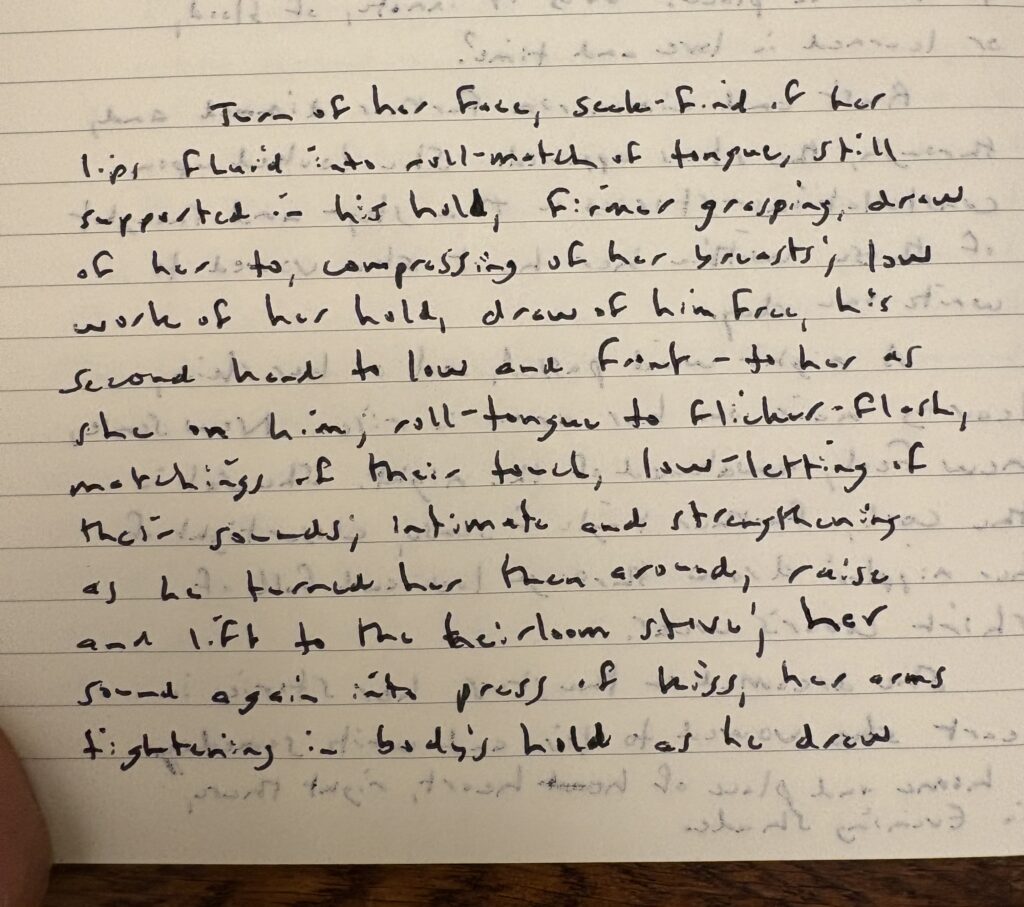 Turn of her face, seek-find of her
lips fluid into roll-match of tongue, still
supported in his hold, firmer grasping, draw
of her to, compressing of her breasts; low
work of her hold, draw of him free, his
second hand to low and front - to her as
she on him; roll-tongue to flicker-flash,
matchings of their touch, low-letting of
their sounds; intimate and strengthening
as he turned her then around, raise
and lift to the heirloom stove; her
sound again into press of kiss, her arms
tightening in body's hold as he drew